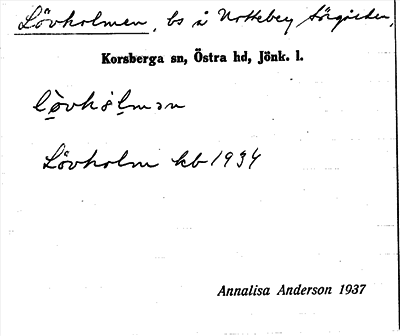 Lövholmen, bs å Nottebey Sörgården,
Korsberga sn, Östra hd, Jönk. l.
lö̀vhólmən
Lövholm kb 1934
Annalisa Anderson 1937